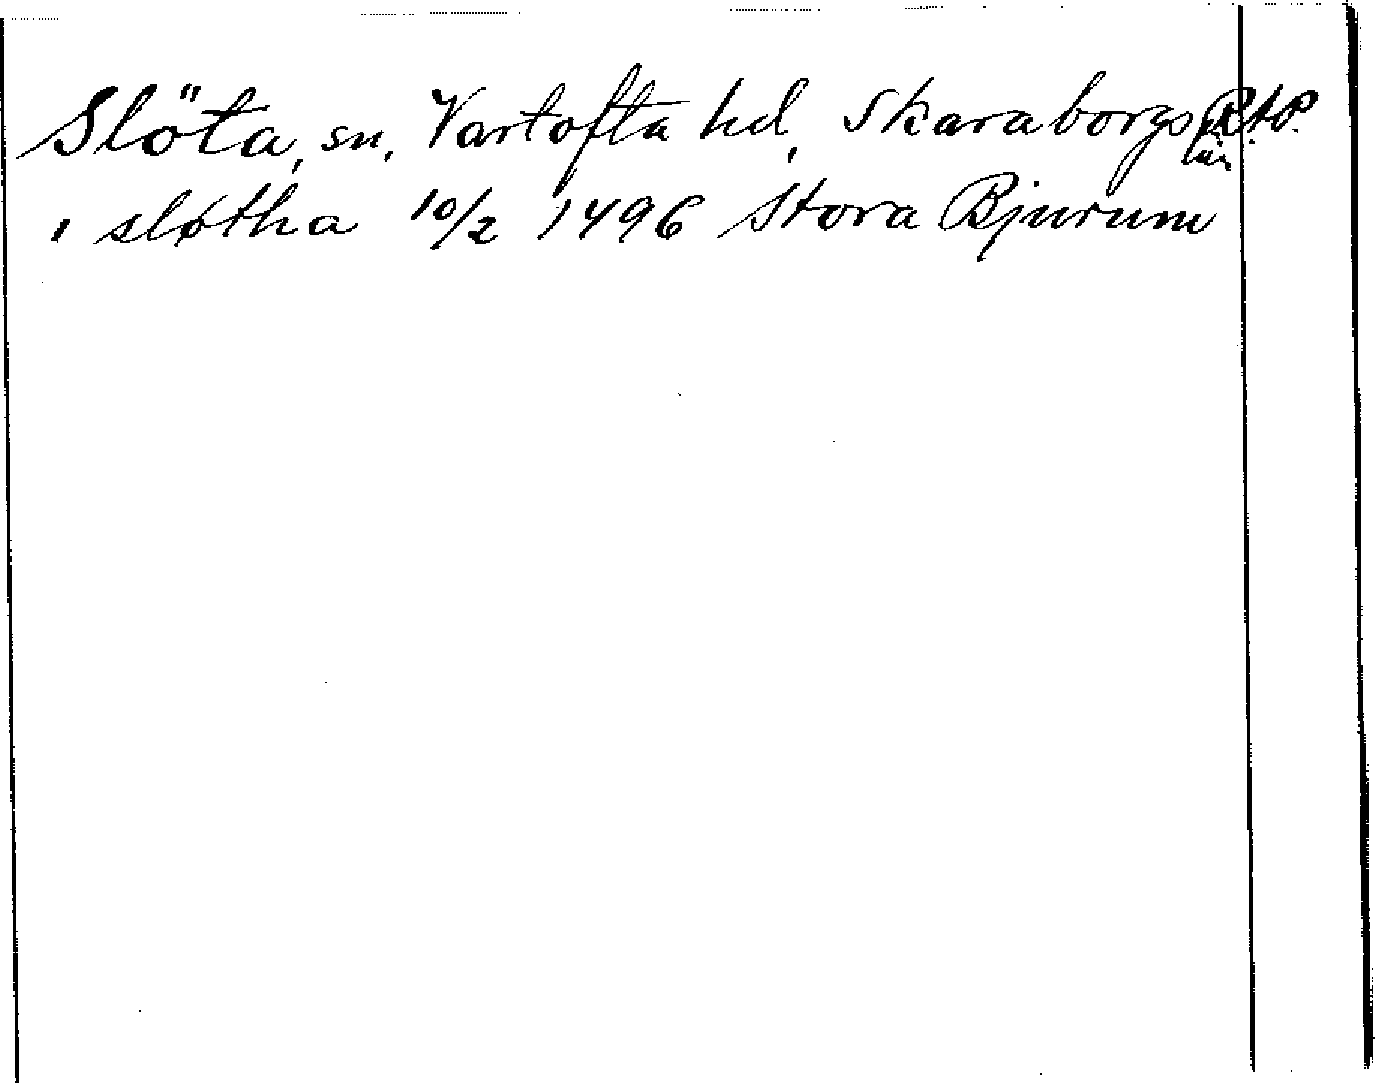 Slöta, sn, Vartofta hd, Skaraborgs län
ı sløtha 10/2 1496 Stora Bjurum